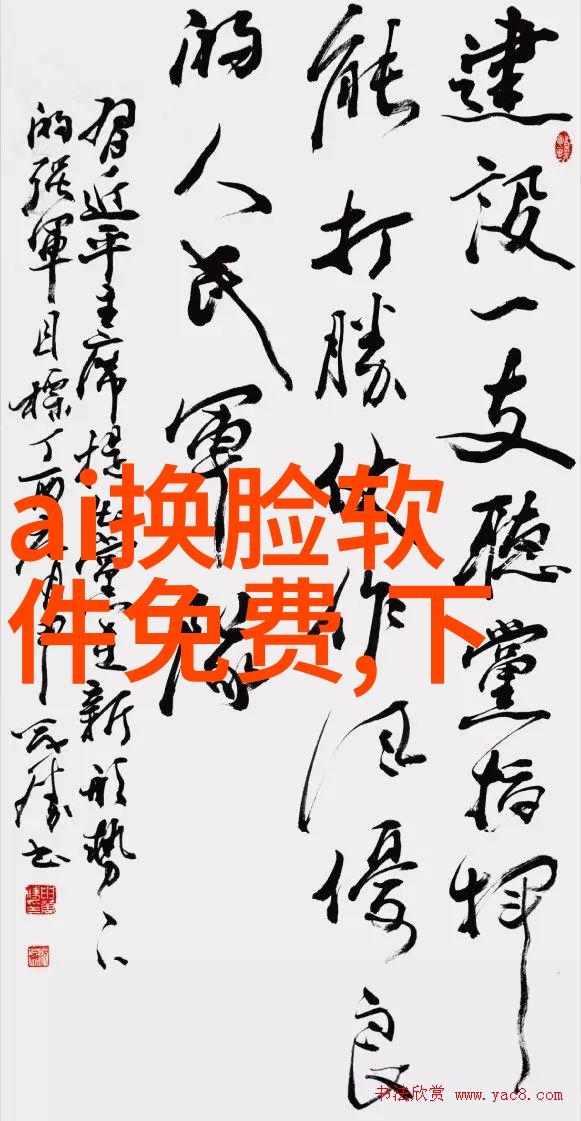 建設一支聽黨指揮
能打勝仗作風優良
的人民軍隊
習近平主席提出黨在新形勢下
的强軍目標丁酉月书
ai换脸软
件免费,下
书法欣赏 www.yac8.com